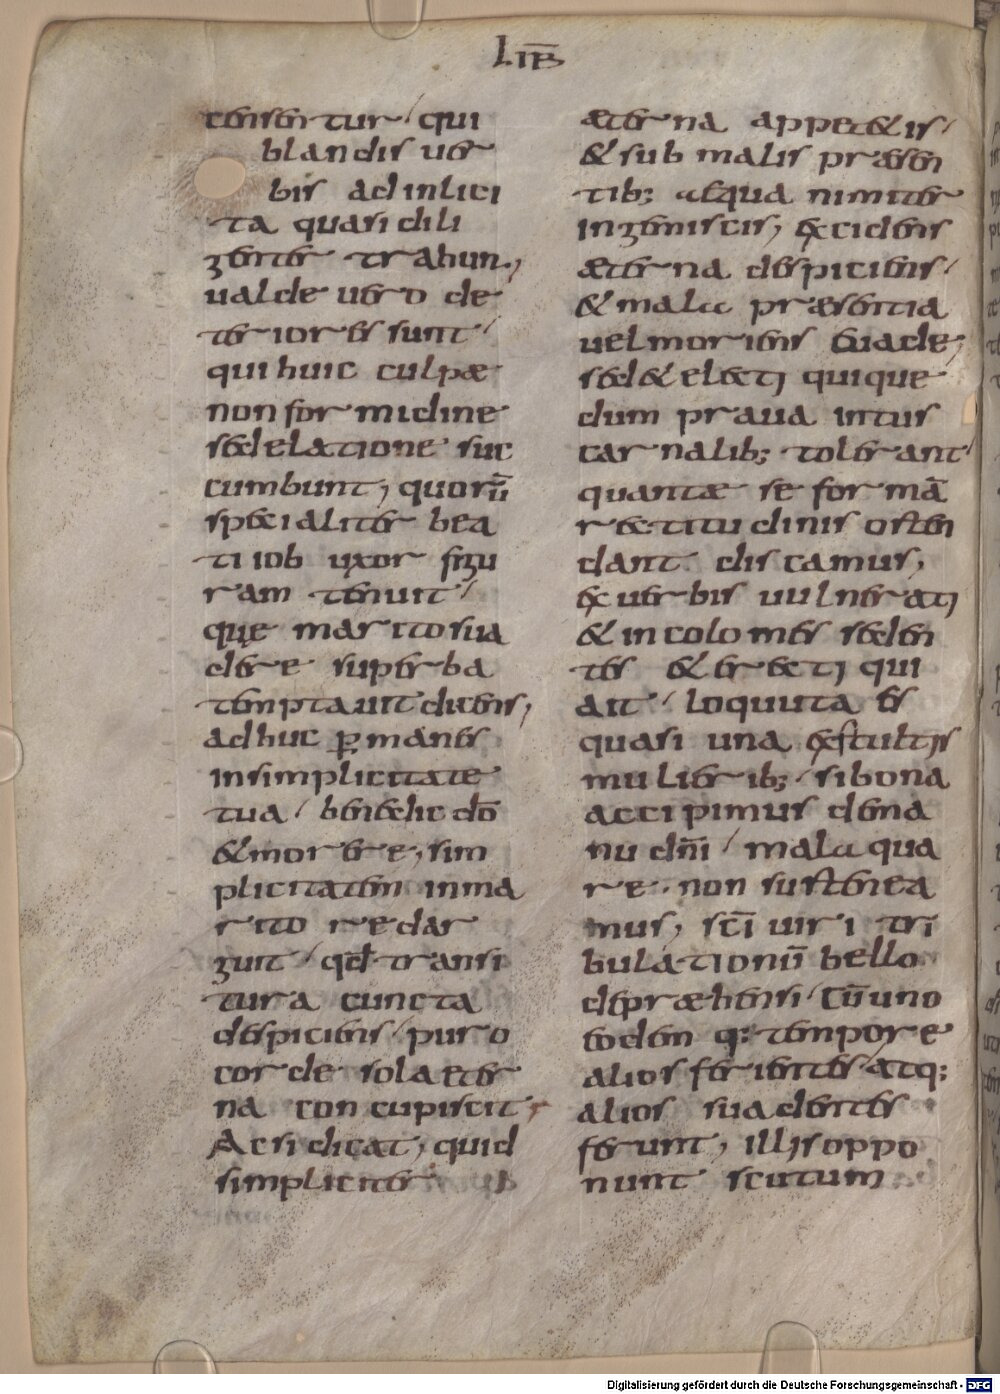 LIB̅
censentur / qui
blandis uer
bis ad inlici
ta quasi dili
genter trahun,
ualde uero de
teriores sunt /
qui huic culpæ
non formidine
sed elatione suc
cumbunt, quorū
specialiter bea
ti iob uxor figu
ram tenuit /
quę marito sua
dere superba
temptauit dicens,
adhuc ꝑmanes
in simplicitate
tua / benedic dō
& morere, sim
plicitatem in ma
rito redar
guit / qđ transi
tura cuncta
despiciens / puro
corde sola aeter
na concupiscit,
Ac si dicat, quid
simpliciter
æterna appet&is /
& sub malis præsen
tib; aequa nimiter
ingemiscis, excidens
æterna despiciens /
& mala præsentia
uel moriens euade,
sed & electi quique
dum praua intus
carnalib; tolerant /
quantæ se formā
rectitudinis osten
dant discamus,
ex uerbis uulnerati
& incolomes seden
tes & erecti qui
ait / loquuta es
quasi una ex stultis
mulierib; / si bona
accipimus de ma
nu dn̄i / mala qua
re non sustinea
mus, sc̄i uiri tri
bulationū bello
depræhensi / cū uno
eodem q; tempore
alios ferientes / atq;
alios suadentes
ferunt, illis oppo
nunt scutum
Digitalisierung gefördert durch die Deutsche Forschungsgemeinschaft - DFG